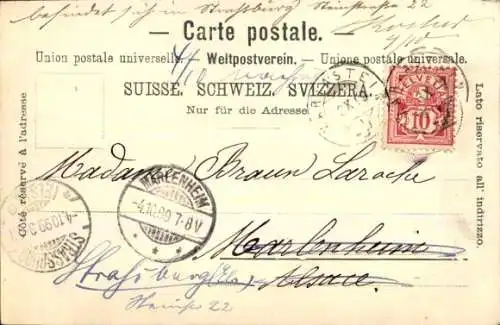 befindet sich in Straßburg Steinstraße 22
— Carte postale. —
Union postale universelle. Weltpostverein. - Unione postale universale.
SUISSE. SCHWEIZ. SVIZZERA.
Nur für die Adresse.
Côté réservé à l'adresse.
Lato riservato all' indirizzo.
HELVETIA
10
Madame Braun Laroche
MARLENHEIM
-4.10.99 7-8V
STRASSBURG
4.10.99
Marlenheim
Strassburg (Els)
Alsace.
Steinstr 22